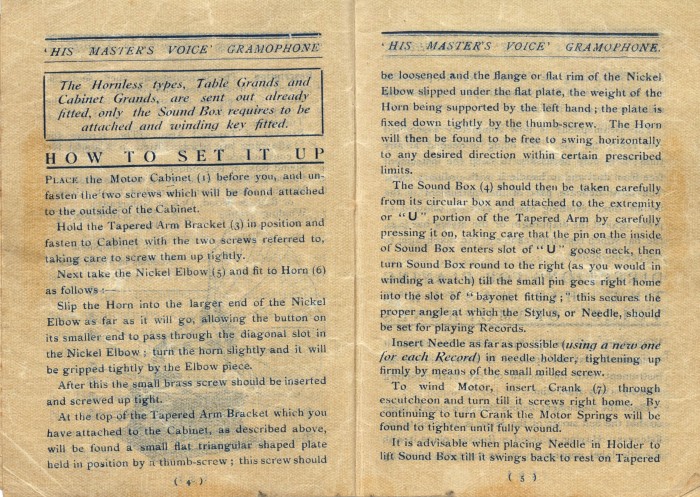 'HIS MASTER'S VOICE' GRAMOPHONE
The Hornless types, Table Grands and
Cabinet Grands, are sent out already
fitted, only the Sound Box requires to be
attached and winding key fitted.
HOW TO SET IT UP
PLACE the Motor Cabinet (1) before you, and un-
fasten the two screws which will be found attached
to the outside of the Cabinet.
Hold the Tapered Arm Bracket (3) in position and
fasten to Cabinet with the two screws referred to,
taking care to screw them up tightly.
Next take the Nickel Elbow (5) and fit to Horn (6)
as follows :—
Slip the Horn into the larger end of the Nickel
Elbow as far as it will go, allowing the button on
its smaller end to pass through the diagonal slot in
the Nickel Elbow ; turn the horn slightly and it will
be gripped tightly by the Elbow piece.
After this the small brass screw should be inserted
and screwed up tight.
At the top of the Tapered Arm Bracket which you
have attached to the Cabinet, as described above,
will be found a small flat triangular shaped plate
held in position by a thumb-screw ; this screw should
( 4 )
'HIS MASTER'S VOICE' GRAMOPHONE.
be loosened and the flange or flat rim of the Nickel
Elbow slipped under the flat plate, the weight of the
Horn being supported by the left hand ; the plate is
fixed down tightly by the thumb-screw. The Horn
will then be found to be free to swing horizontally
to any desired direction within certain prescribed
limits.
The Sound Box (4) should then be taken carefully
from its circular box and attached to the extremity
or "U" portion of the Tapered Arm by carefully
pressing it on, taking care that the pin on the inside
of Sound Box enters slot of "U" goose neck, then
turn Sound Box round to the right (as you would in
winding a watch) till the small pin goes right home
into the slot of "bayonet fitting ;" this secures the
proper angle at which the Stylus, or Needle, should
be set for playing Records.
Insert Needle as far as possible (using a new one
for each Record) in needle holder, tightening up
firmly by means of the small milled screw.
To wind Motor, insert Crank (7) through
escutcheon and turn till it screws right home. By
continuing to turn Crank the Motor Springs will be
found to tighten until fully wound.
It is advisable when placing Needle in Holder to
lift Sound Box till it swings back to rest on Tapered
( 5 )